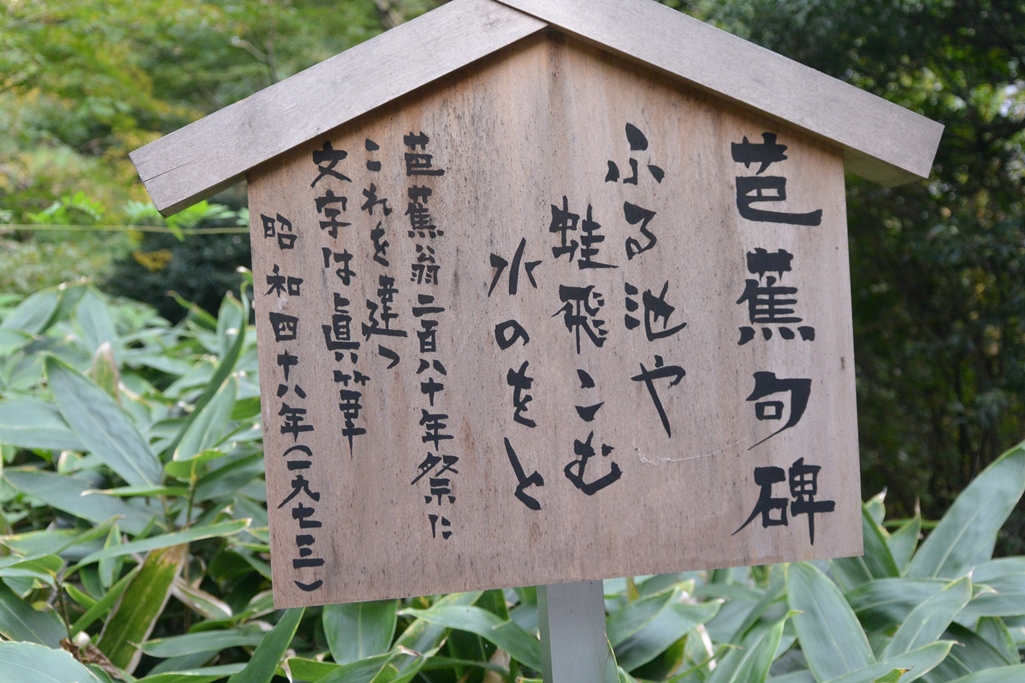 芭蕉句碑
ふる池や
蛙飛こむ
水のをと
芭蕉翁二百八十年祭に
これを建つ
文字は眞筆
昭和四十八年(一九七三)